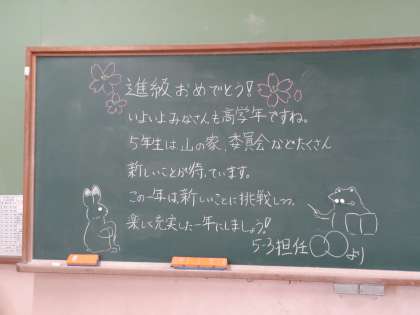 進級おめでとう!
いよいよみなさんも高学年ですね。
5年生は山の家、委員会などたくさん
新しいことが待っています。
この一年は新しいことに挑戦しつつ、
楽しく充実した一年にしましょう!
5-3担任○○より